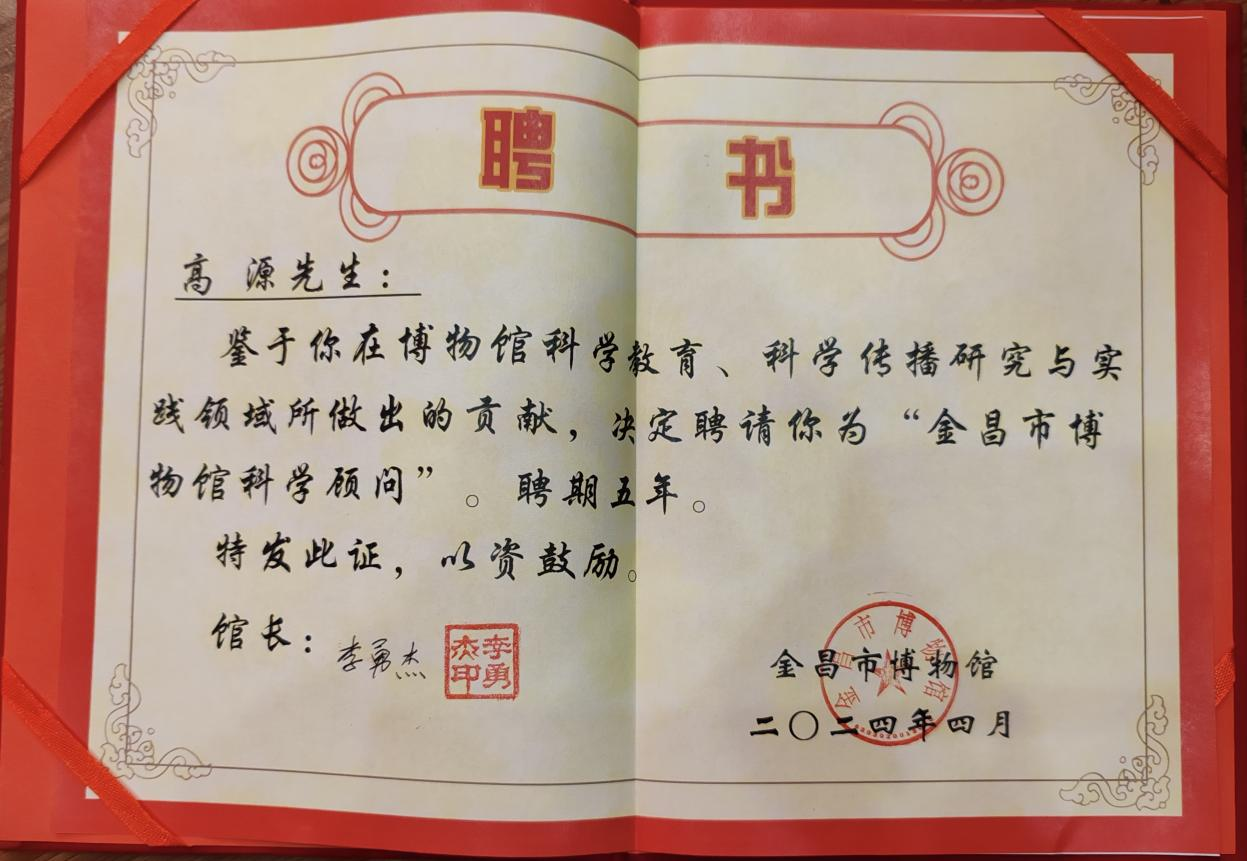 聘书
高 源先生：
鉴于你在博物馆科学教育、科学传播研究与实
践领域所做出的贡献，决定聘请你为“金昌市博
物馆科学顾问”。聘期五年。
特发此证，以资鼓励。
馆长：李勇杰
李勇杰印
金昌市博物馆
金昌市博物馆
二〇二四年四月